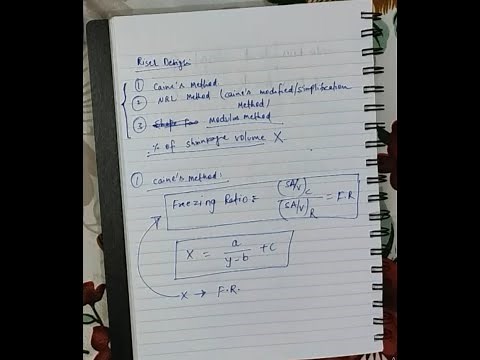 Riser Design:
① Caine's Method
② NRL Method (caine's modified/simplification
Method)
③ Shape Modulus method
% of shrinkage volume X
① Caine's method:
Freezing Ratio = (SA/V)C / (SA/V)R = F.R
X = a / y-b + c
X → F.R.